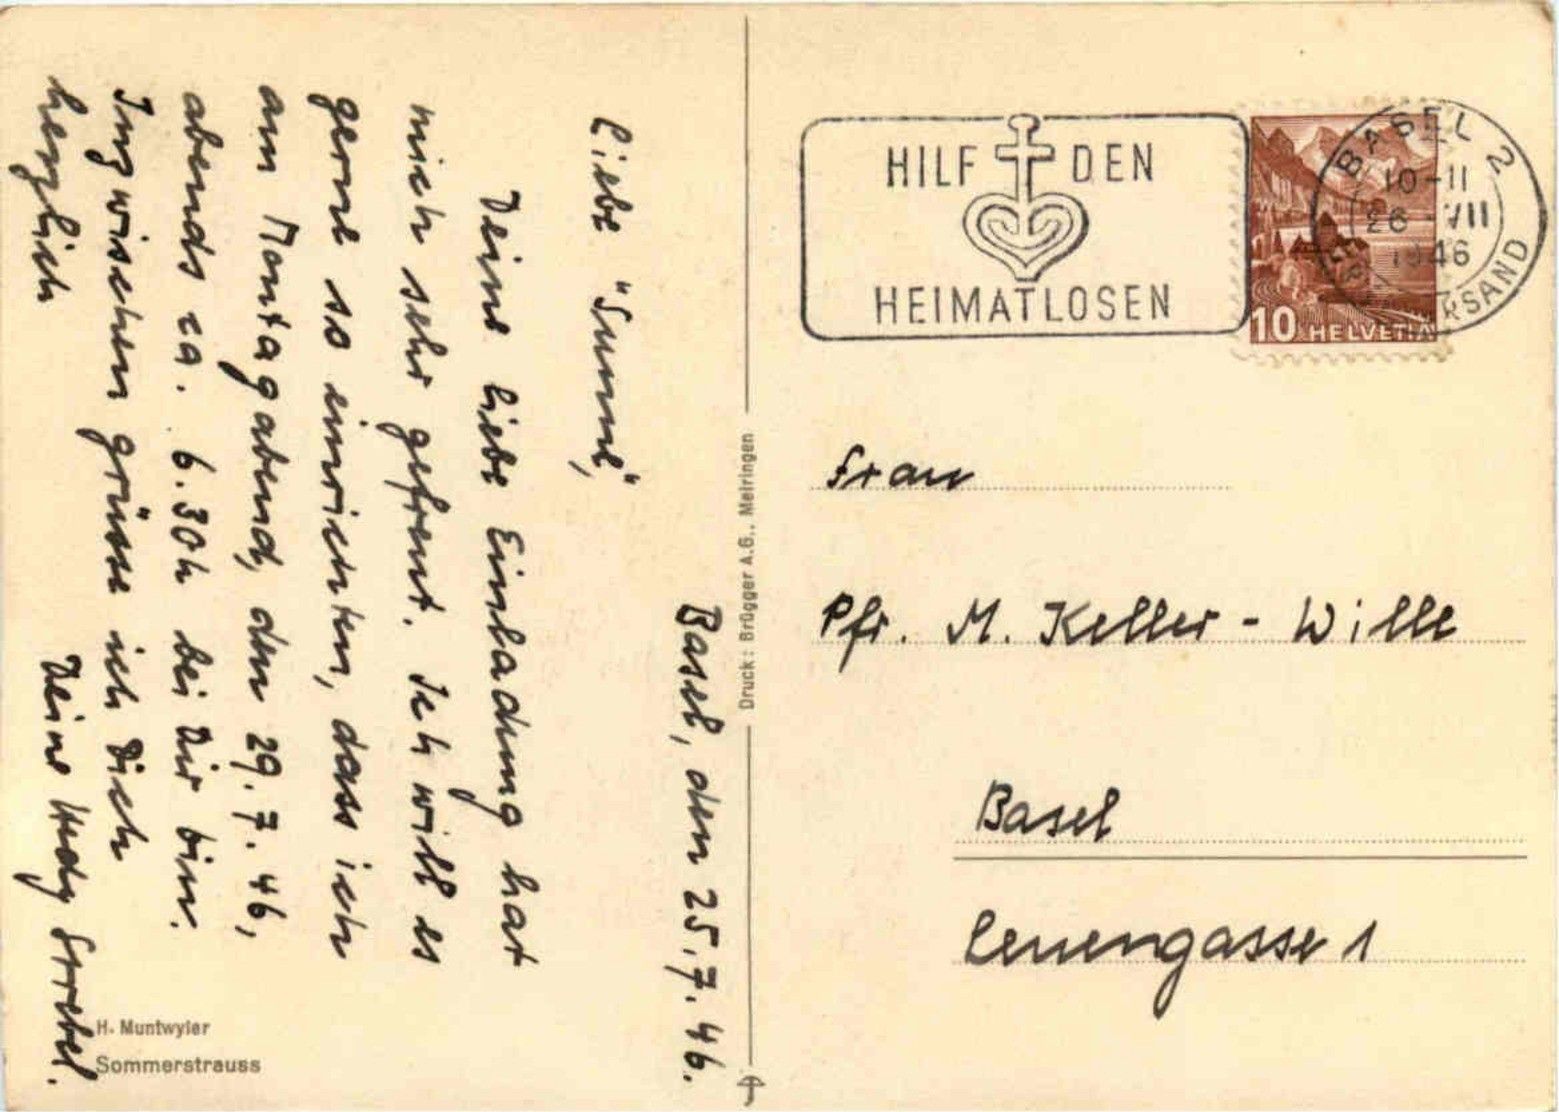 Basel, den 25.7.46.
Liebe "Sunne",
Deine liebe Einladung hat
mich sehr gefreut. Ich will es
gerne so einrichten, dass ich
am Montagabend, den 29.7.46,
abends ca. 6.30h bei Dir bin.
Inzwischen grüsse ich Dich
herzlich
Deine Hedy Strebel.
H. Muntwyler
Sommerstrauss
Druck: Brügger A.G., Meiringen
HILF DEN
HEIMATLOSEN
BASEL 2
10-11
26 VII
1946
RSAND
10 HELVETIA
Frau
Pfr. M. Keller-Wille
Basel
Leuengasse 1